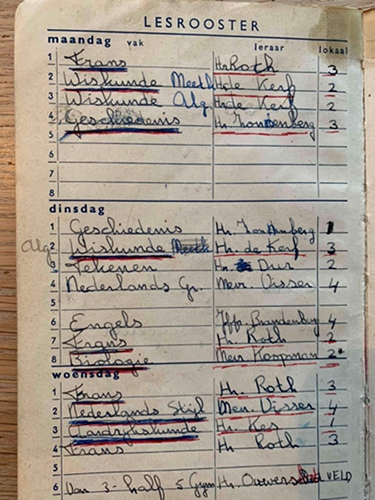 LESROOSTER
maandag vak leraar lokaal
1 Frans Hr Roth 3
2 Wiskunde Meetk Hr. de Kerf 2
3 Wiskunde Alg. Hr. de Kerf 2
4 Geschiedenis Hr. 3
5
6
7
8
dinsdag
1 Geschiedenis Hr. 1
Alg 2 Wiskunde Meetk Hr. de Kerf 3
3 Tekenen Hr. Dur 2
4 Nederlands Gr. Mevr. Visser 4
5
6 Engels Jffr. Brandenburg 4
7 Frans Hr. Roth 2
8 Biologie Mevr Koopman 2
woensdag
1 Frans Hr. Roth 3
2 Nederlands Stijl Mevr. Visser 4
3 Aardrijkskunde Hr. Kes 1
4 Frans Hr Roth 3
5
6 Van 3 - half 5 Gym Hr. VELD